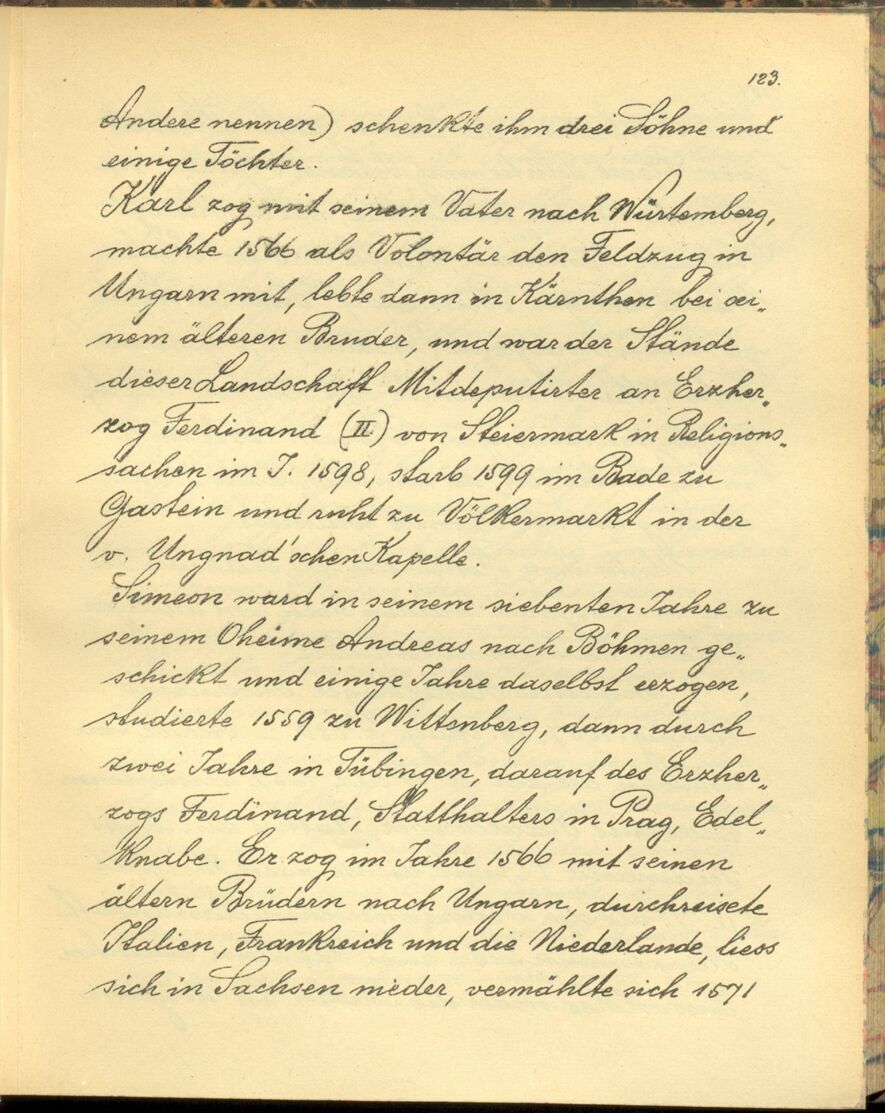 123.
Andere nennen) schenkte ihm drei Söhne und
einige Töchter.
Karl zog mit seinem Vater nach Würtemberg,
machte 1566 als Volontär den Feldzug in
Ungarn mit, lebte dann in Kärnthen bei sei„
nem älteren Bruder, und war der Stände
dieser Landschaft Mitdeputirter an Erzher„
zog Ferdinand (II.) von Steiermark in Religions„
sachen im J. 1598, starb 1599 im Bade zu
Gastein und ruht zu Völkermarkt in der
v. Ungnad'schen Kapelle.
Simeon ward in seinem siebenten Jahre zu
seinem Oheime Andreas nach Böhmen ge„
schickt und einige Jahre daselbst erzogen,
studierte 1559 zu Wittenberg, dann durch
zwei Jahre in Tübingen, darauf des Erzher„
zogs Ferdinand, Statthalters in Prag, Edel„
knabe. Er zog im Jahre 1566 mit seinen
ältern Brüdern nach Ungarn, durchreisete
Italien, Frankreich und die Niederlande, liess
sich in Sachsen nieder, vermählte sich 1571